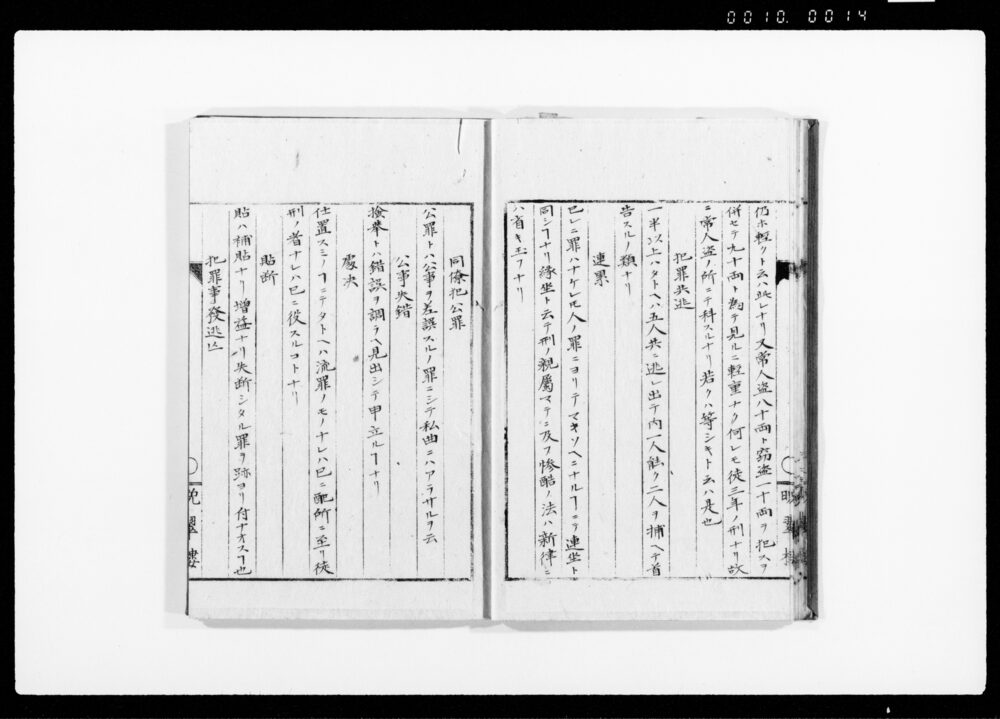 0010. 0014
仍ホ軽クト云ハ此レナリ又常人盗八十両ト窃盗一十両ヲ犯スヲ
併セテ九十両ト為テ見ルニ軽重ナク何レモ徒三年ノ刑ナリ故
ニ常人盗ノ所ニテ科スルナリ若クハ等シキト云ハ是也
犯罪共逃
一半以上ハタトヘハ五人共ニ逃レ出テ内一人能ク二人ヲ捕ヘテ首
告スルノ類ナリ
連累
已レニ罪ハナケレモ人ノ罪ニヨリテマキソヘニナルヿニテ連坐ト
同シヿナリ縁坐ト云テ刑ノ親屬マテニ及フ惨酷ノ法ハ新律ニ
ハ省キ玉フナリ
晩翠楼
同僚犯公罪
公罪トハ公事ヲ差誤スルノ罪ニシテ私曲ニハアラサルヲ云
公事失錯
撿挙トハ錯誤ヲ調ラヘ見出シテ申立ルヿナリ
處决
仕置スミノヿニテタトヘハ流罪ノモノナレハ已ニ配所ニ至リ徒
刑ノ者ナレハ已ニ役スルコトナリ
貼断
貼ハ補貼ナリ増益ナリ失断シタル罪ヲ跡ヨリ付ナオスヿ也
犯罪事發逃亡
晩翠楼